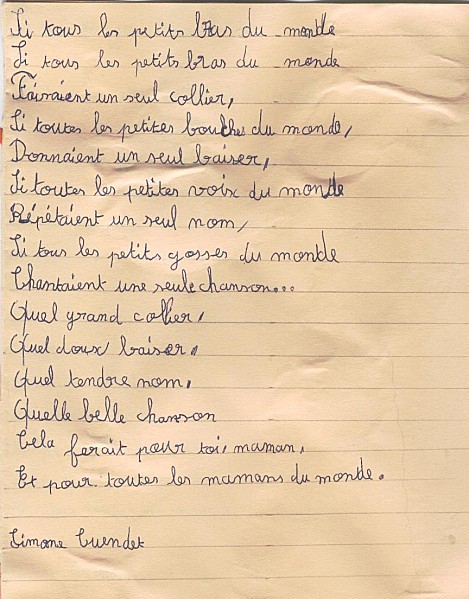 Si tous les petits bras du monde
Si tous les petits bras du monde
Faisaient un seul collier,
Si toutes les petites bouches du monde,
Donnaient un seul baiser,
Si toutes les petites voix du monde
Répétaient un seul nom,
Si tous les petits gosses du monde
Chantaient une seule chanson...
Quel grand collier,
Quel doux baiser,
Quel tendre nom,
Quelle belle chanson
Cela ferait pour toi, maman,
Et pour toutes les mamans du monde.
Simone Cuendet